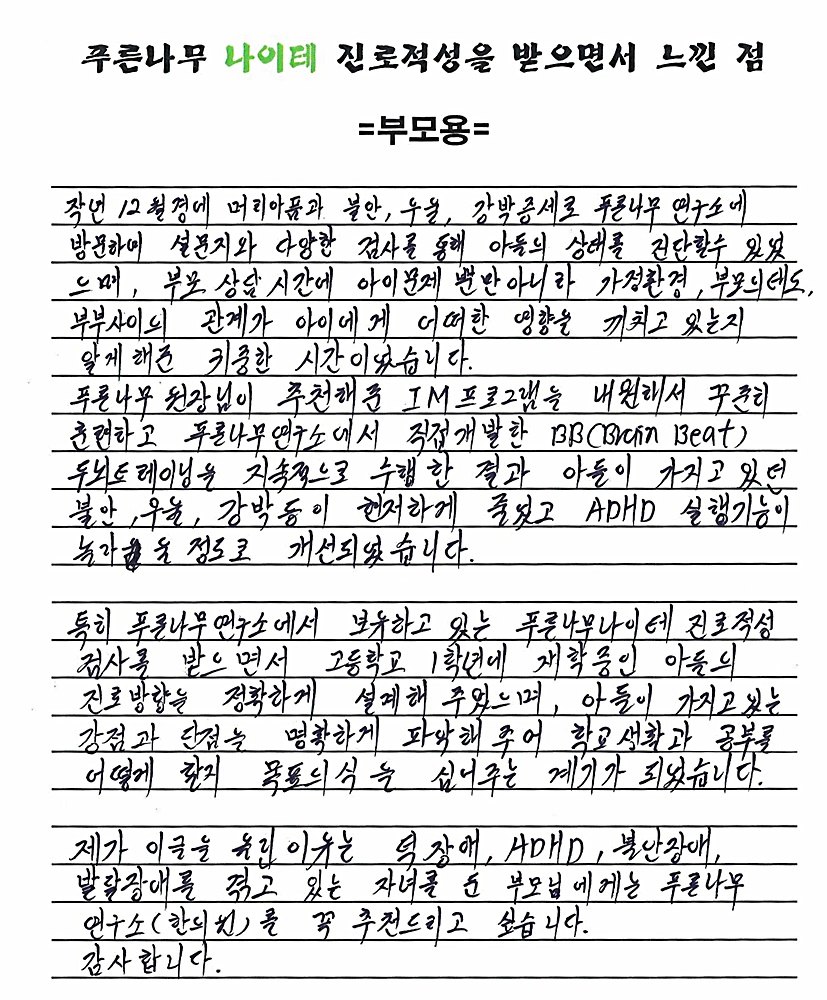 푸른나무 나이테 진로적성을 받으면서 느낀 점
=부모용=
작년 12월경에 머리아픔과 불안, 우울, 강박증세로 푸른나무 연구소에
방문하여 설문지와 다양한 검사를 통해 아들의 상태를 진단할수 있었
으며, 부모 상담 시간에 아이문제 뿐만아니라 가정환경, 부모의태도,
부부사이의 관계가 아이에게 어떠한 영향을 끼치고 있는지
알게해준 귀중한 시간이었습니다.
푸른나무 원장님이 추천해준 IM프로그램을 내원해서 꾸준히
훈련하고 푸른나무연구소에서 직접개발한 BB(Brain Beat)
두뇌트레이닝을 지속적으로 수행한 결과 아들이 가지고 있던
불안, 우울, 강박등이 현저하게 줄었고 ADHD 실행기능이
놀라울 정도로 개선되었습니다.
특히 푸른나무연구소에서 보유하고 있는 푸른나무나이테 진로적성
검사를 받으면서 고등학교 1학년에 재학중인 아들의
진로방향을 정확하게 설계해 주었으며, 아들이 가지고있는
강점과 단점을 명확하게 파악해 주어 학교생활과 공부를
어떻게 할지 목표의식을 심어주는 계기가 되었습니다.
제가 이글을 올린이유는 턱장애, ADHD, 불안장애,
발달장애를 겪고 있는 자녀를 둔 부모님에게는 푸른나무
연구소(한의원)를 꼭 추천드리고 싶습니다.
감사합니다.